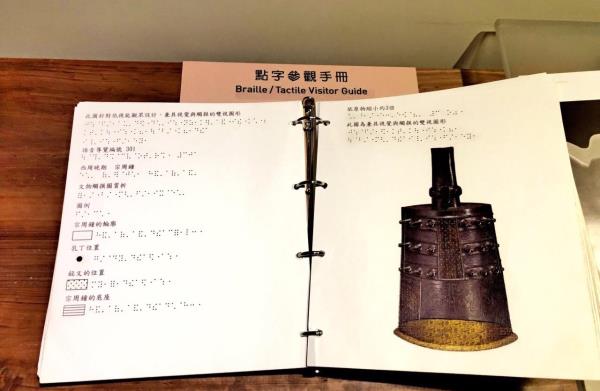 點字參觀手冊
Braille / Tactile Visitor Guide
此圖針對低視能觀眾設計，兼具視覺與觸摸的雙視圖形
語音導覽編號 301
西周晚期 宗周鐘
文物觸摸圖賞析
圖例
宗周鐘的輪廓
乳丁位置
銘文的位置
宗周鐘的底座
原物縮小約3倍
此圖為兼具視覺與觸摸的雙視圖形